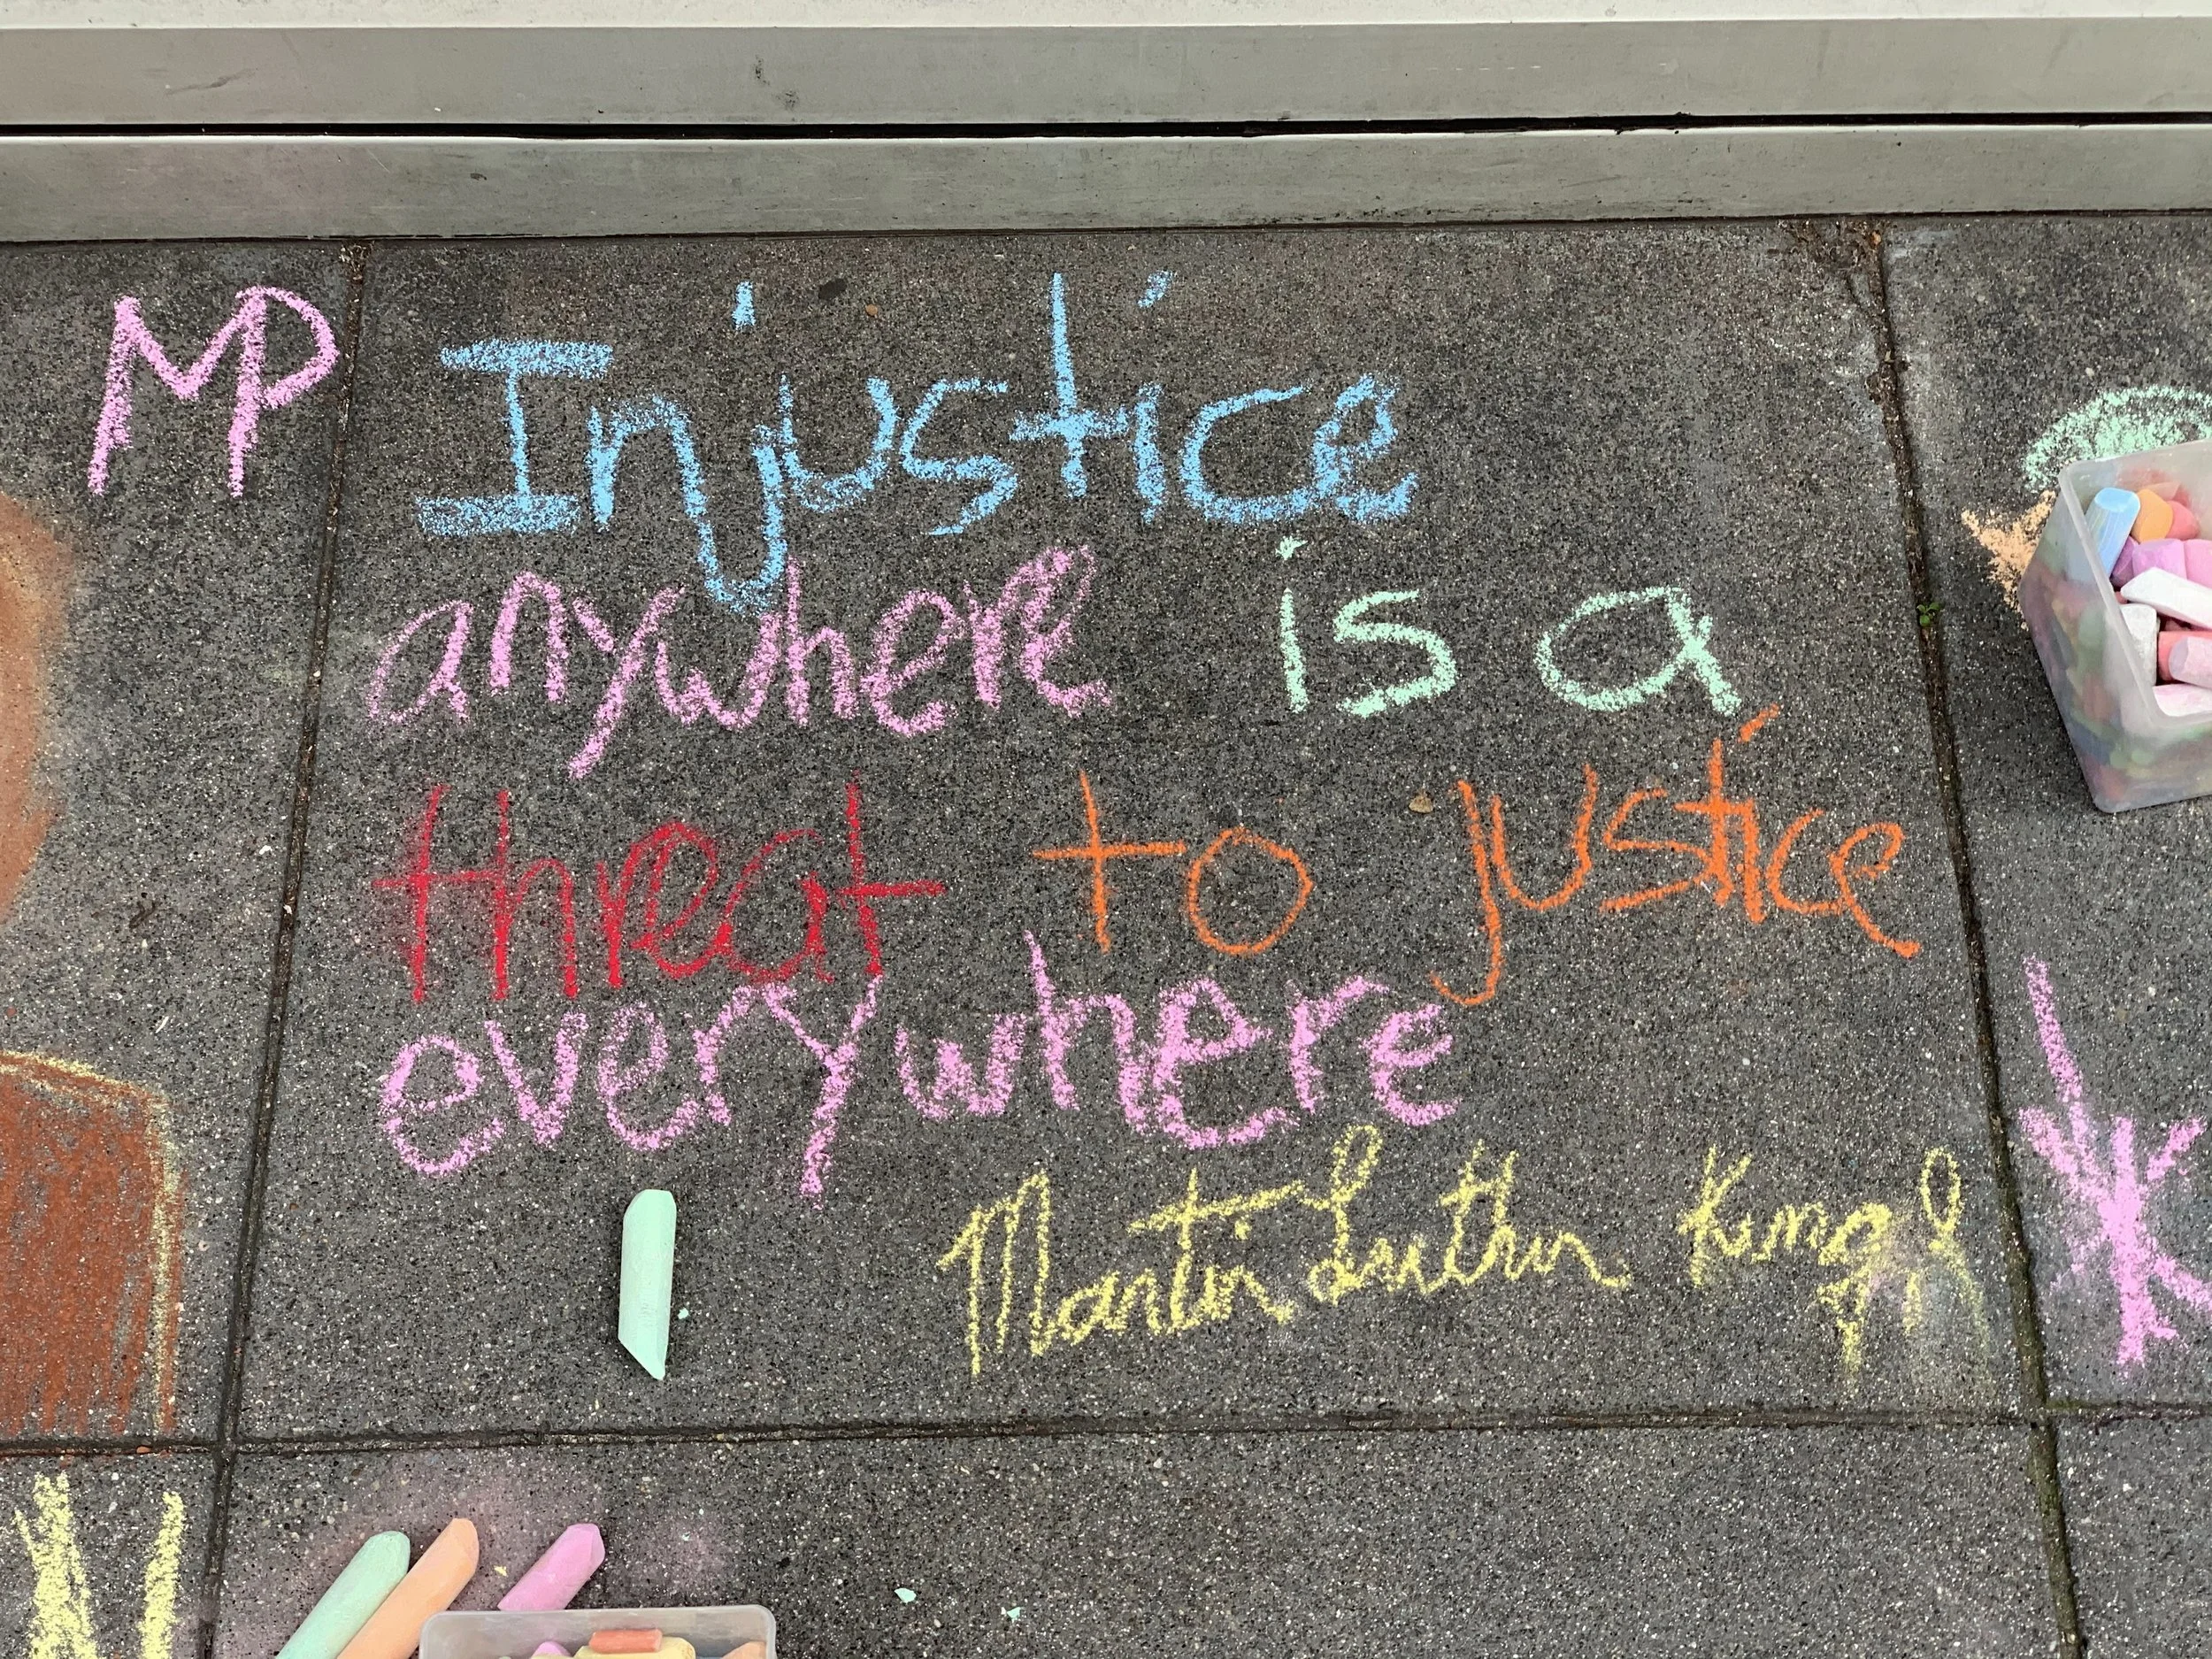 MP
Injustice
anywhere is a
threat to justice
everywhere
Martin Luther King